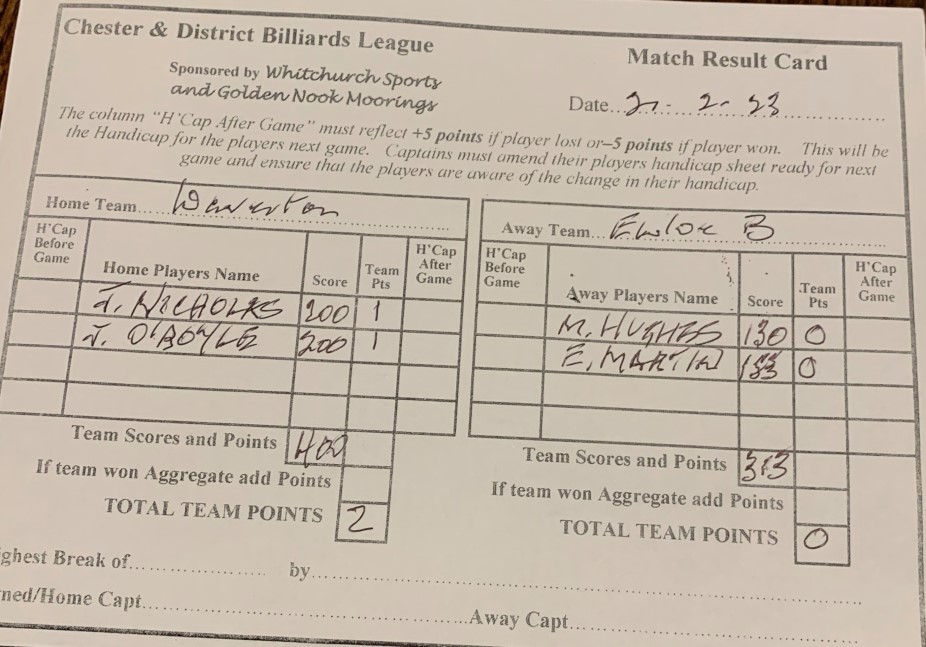 Chester & District Billiards League
Match Result Card
Sponsored by Whitchurch Sports
and Golden Nook Moorings
Date... 21- 2-23
The column "H'Cap After Game" must reflect +5 points if player lost or–5 points if player won. This will be
the Handicap for the players next game. Captains must amend their players handicap sheet ready for next
game and ensure that the players are aware of the change in their handicap.
Home Team... Waverton
H'Cap
Before
Game
Home Players Name
Score
Team
Pts
H'Cap
After
Game
J. NICHOLAS 200 1
J. O'BOYLE 200 1
Team Scores and Points 400
If team won Aggregate add Points
TOTAL TEAM POINTS 2
Away Team... Ewloe B
H'Cap
Before
Game
Away Players Name
Score
Team
Pts
H'Cap
After
Game
M. HUGHES 130 0
E. MARTIN 183 0
Team Scores and Points 313
If team won Aggregate add Points
TOTAL TEAM POINTS 0
ghest Break of... by...
ned/Home Capt... Away Capt...